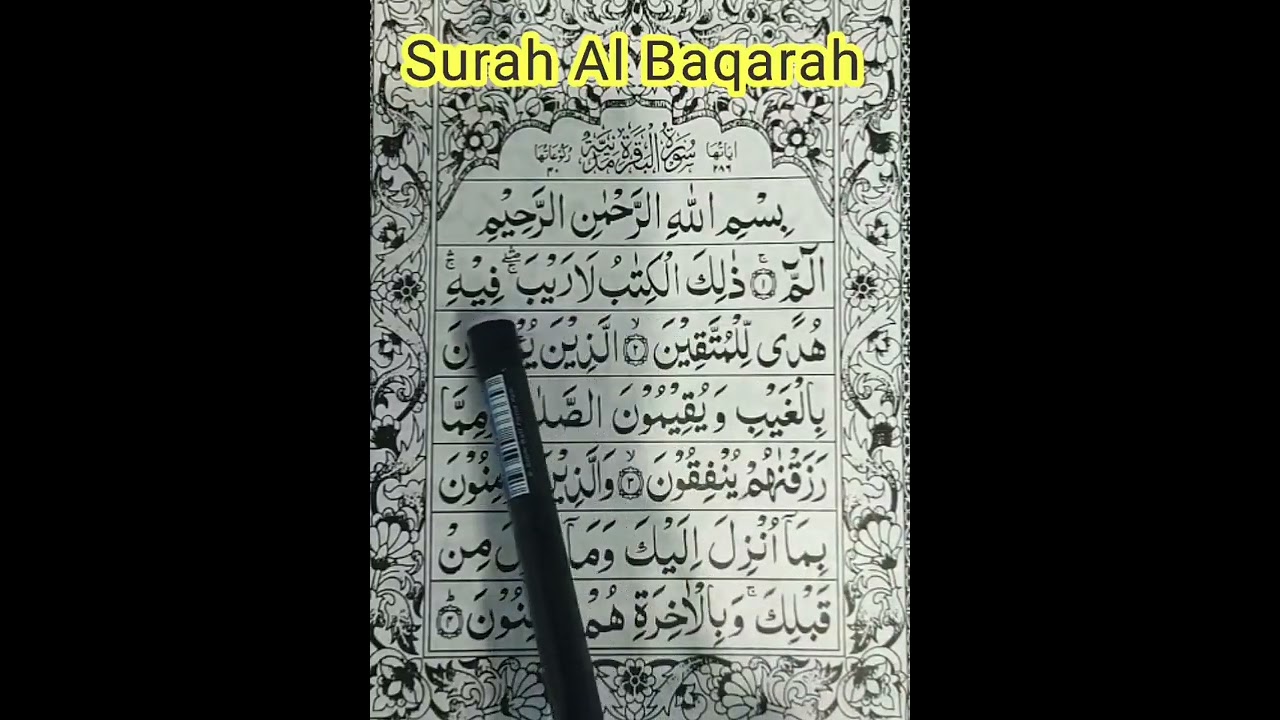 Surah Al Baqarah
اٰیَاتُهَا ٢٨٦ سُوْرَةُ الْبَقَرَةِ مَدَنِیَّةٌ رُكُوْعَاتُهَا ٤٠
بِسْمِ اللّٰهِ الرَّحْمٰنِ الرَّحِیْمِ
الٓمّٓ ۚ﴿١﴾ ذٰلِكَ الْكِتٰبُ لَا رَیْبَ ۖۛۚ فِیْهِ ۚۛ
هُدًی لِّلْمُتَّقِیْنَ ۙ﴿٢﴾ الَّذِیْنَ
بِالْغَیْبِ وَ یُقِیْمُوْنَ وَمِمَّا
رَزَقْنٰهُمْ یُنْفِقُوْنَ ۙ﴿٣﴾
بِمَاۤ اُنْزِلَ اِلَیْكَ مِنْ
قَبْلِكَ ۚ وَبِالْاٰخِرَةِ هُمْ ؕ﴿٤﴾